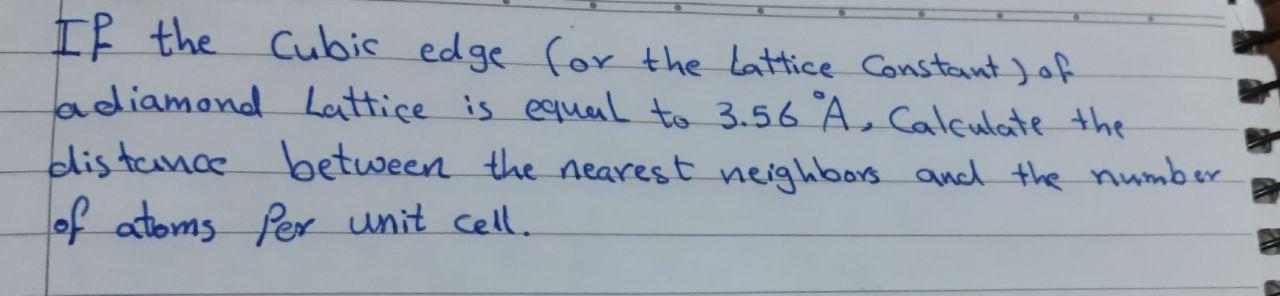 If the Cubic edge (or the Lattice Constant) of
a diamond Lattice is equal to 3.56 °A, Calculate the
distance between the nearest neighbors and the number
of atoms Per unit cell.